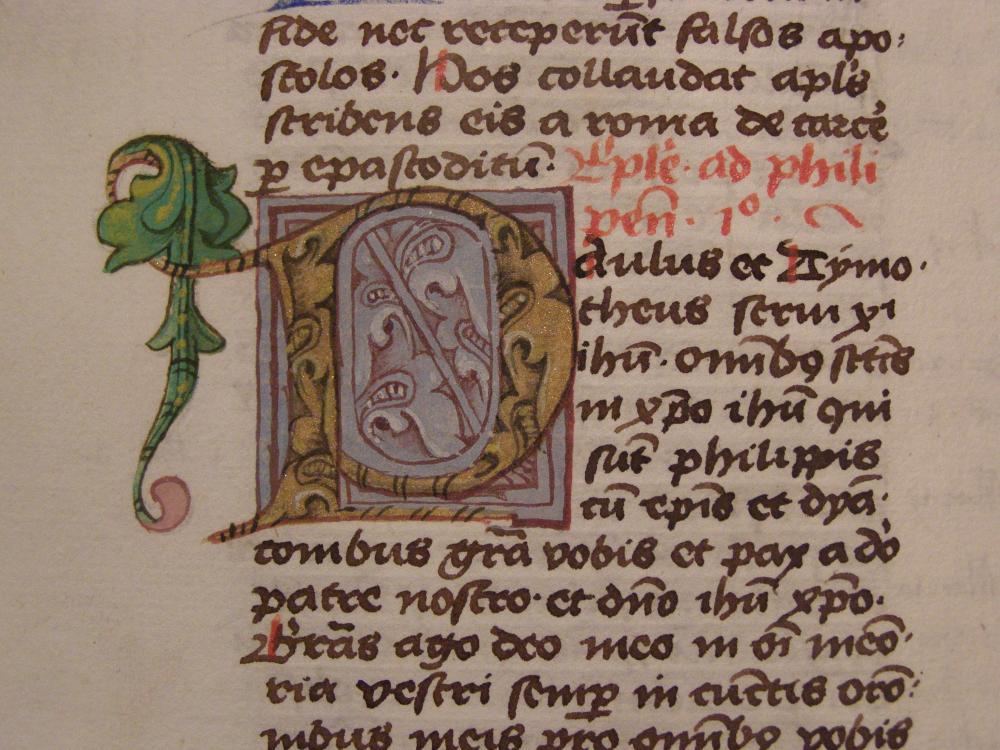 fide nec receperūt falsos apo:
stolos. Hos collaudat apl's
scribens eis a roma de carce
ꝑ epafroditū. Eple. ad phili
pen̄. 1º.
Paulus et Tymo.
theus serui xp̄i
ihū. omīb9 sctis
in xp̄o ihū qui
sūt philippis
cū ep̄is et dya.
conibus grā vobis et pax a dō
patre nostro. et dn̄o ihū xp̄o.
Grās ago deo meo in oī meō.
ria vestri semꝑ in cūctis orō:
nibus meis pro omībꝫ vobis